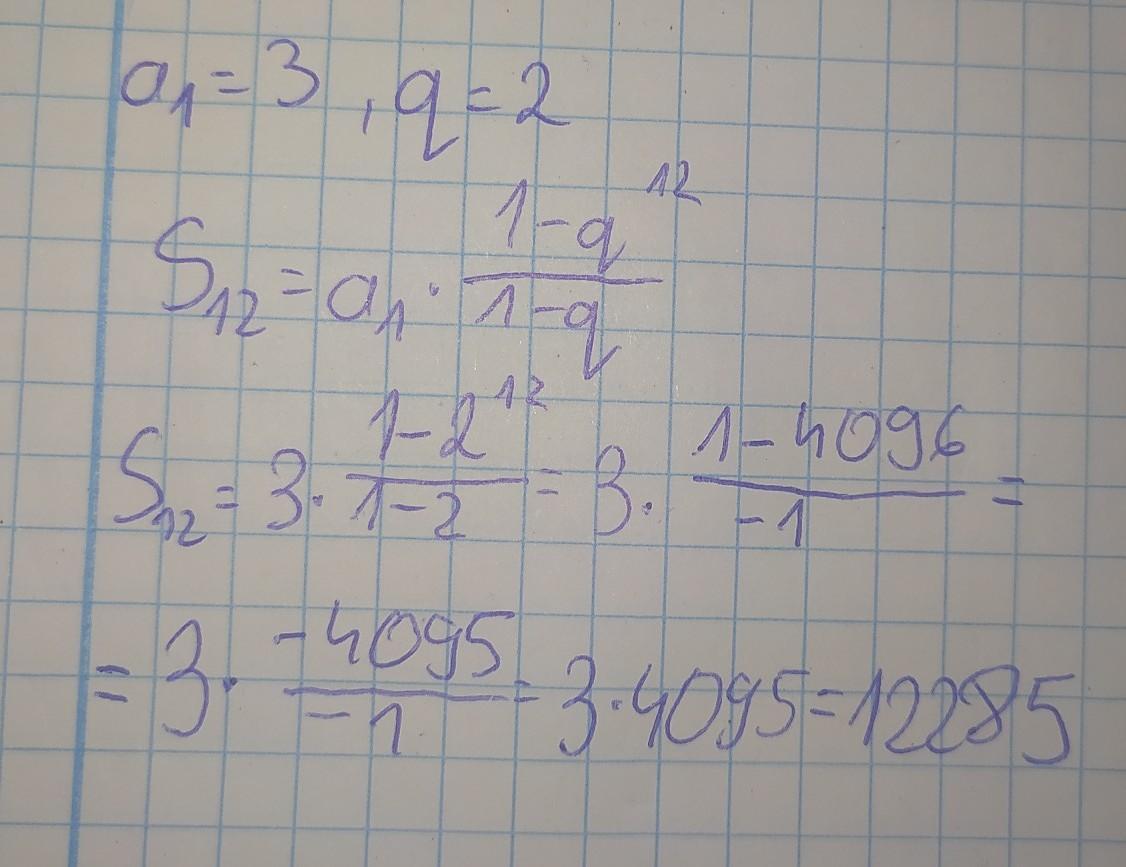 a₁ = 3, q = 2
S₁₂ = a₁ · (1 - q¹²)/(1 - q)
S₁₂ = 3 · (1 - 2¹²)/(1 - 2) = 3 · (1 - 4096)/(-1) =
= 3 · (-4095)/(-1) = 3 · 4095 = 12285